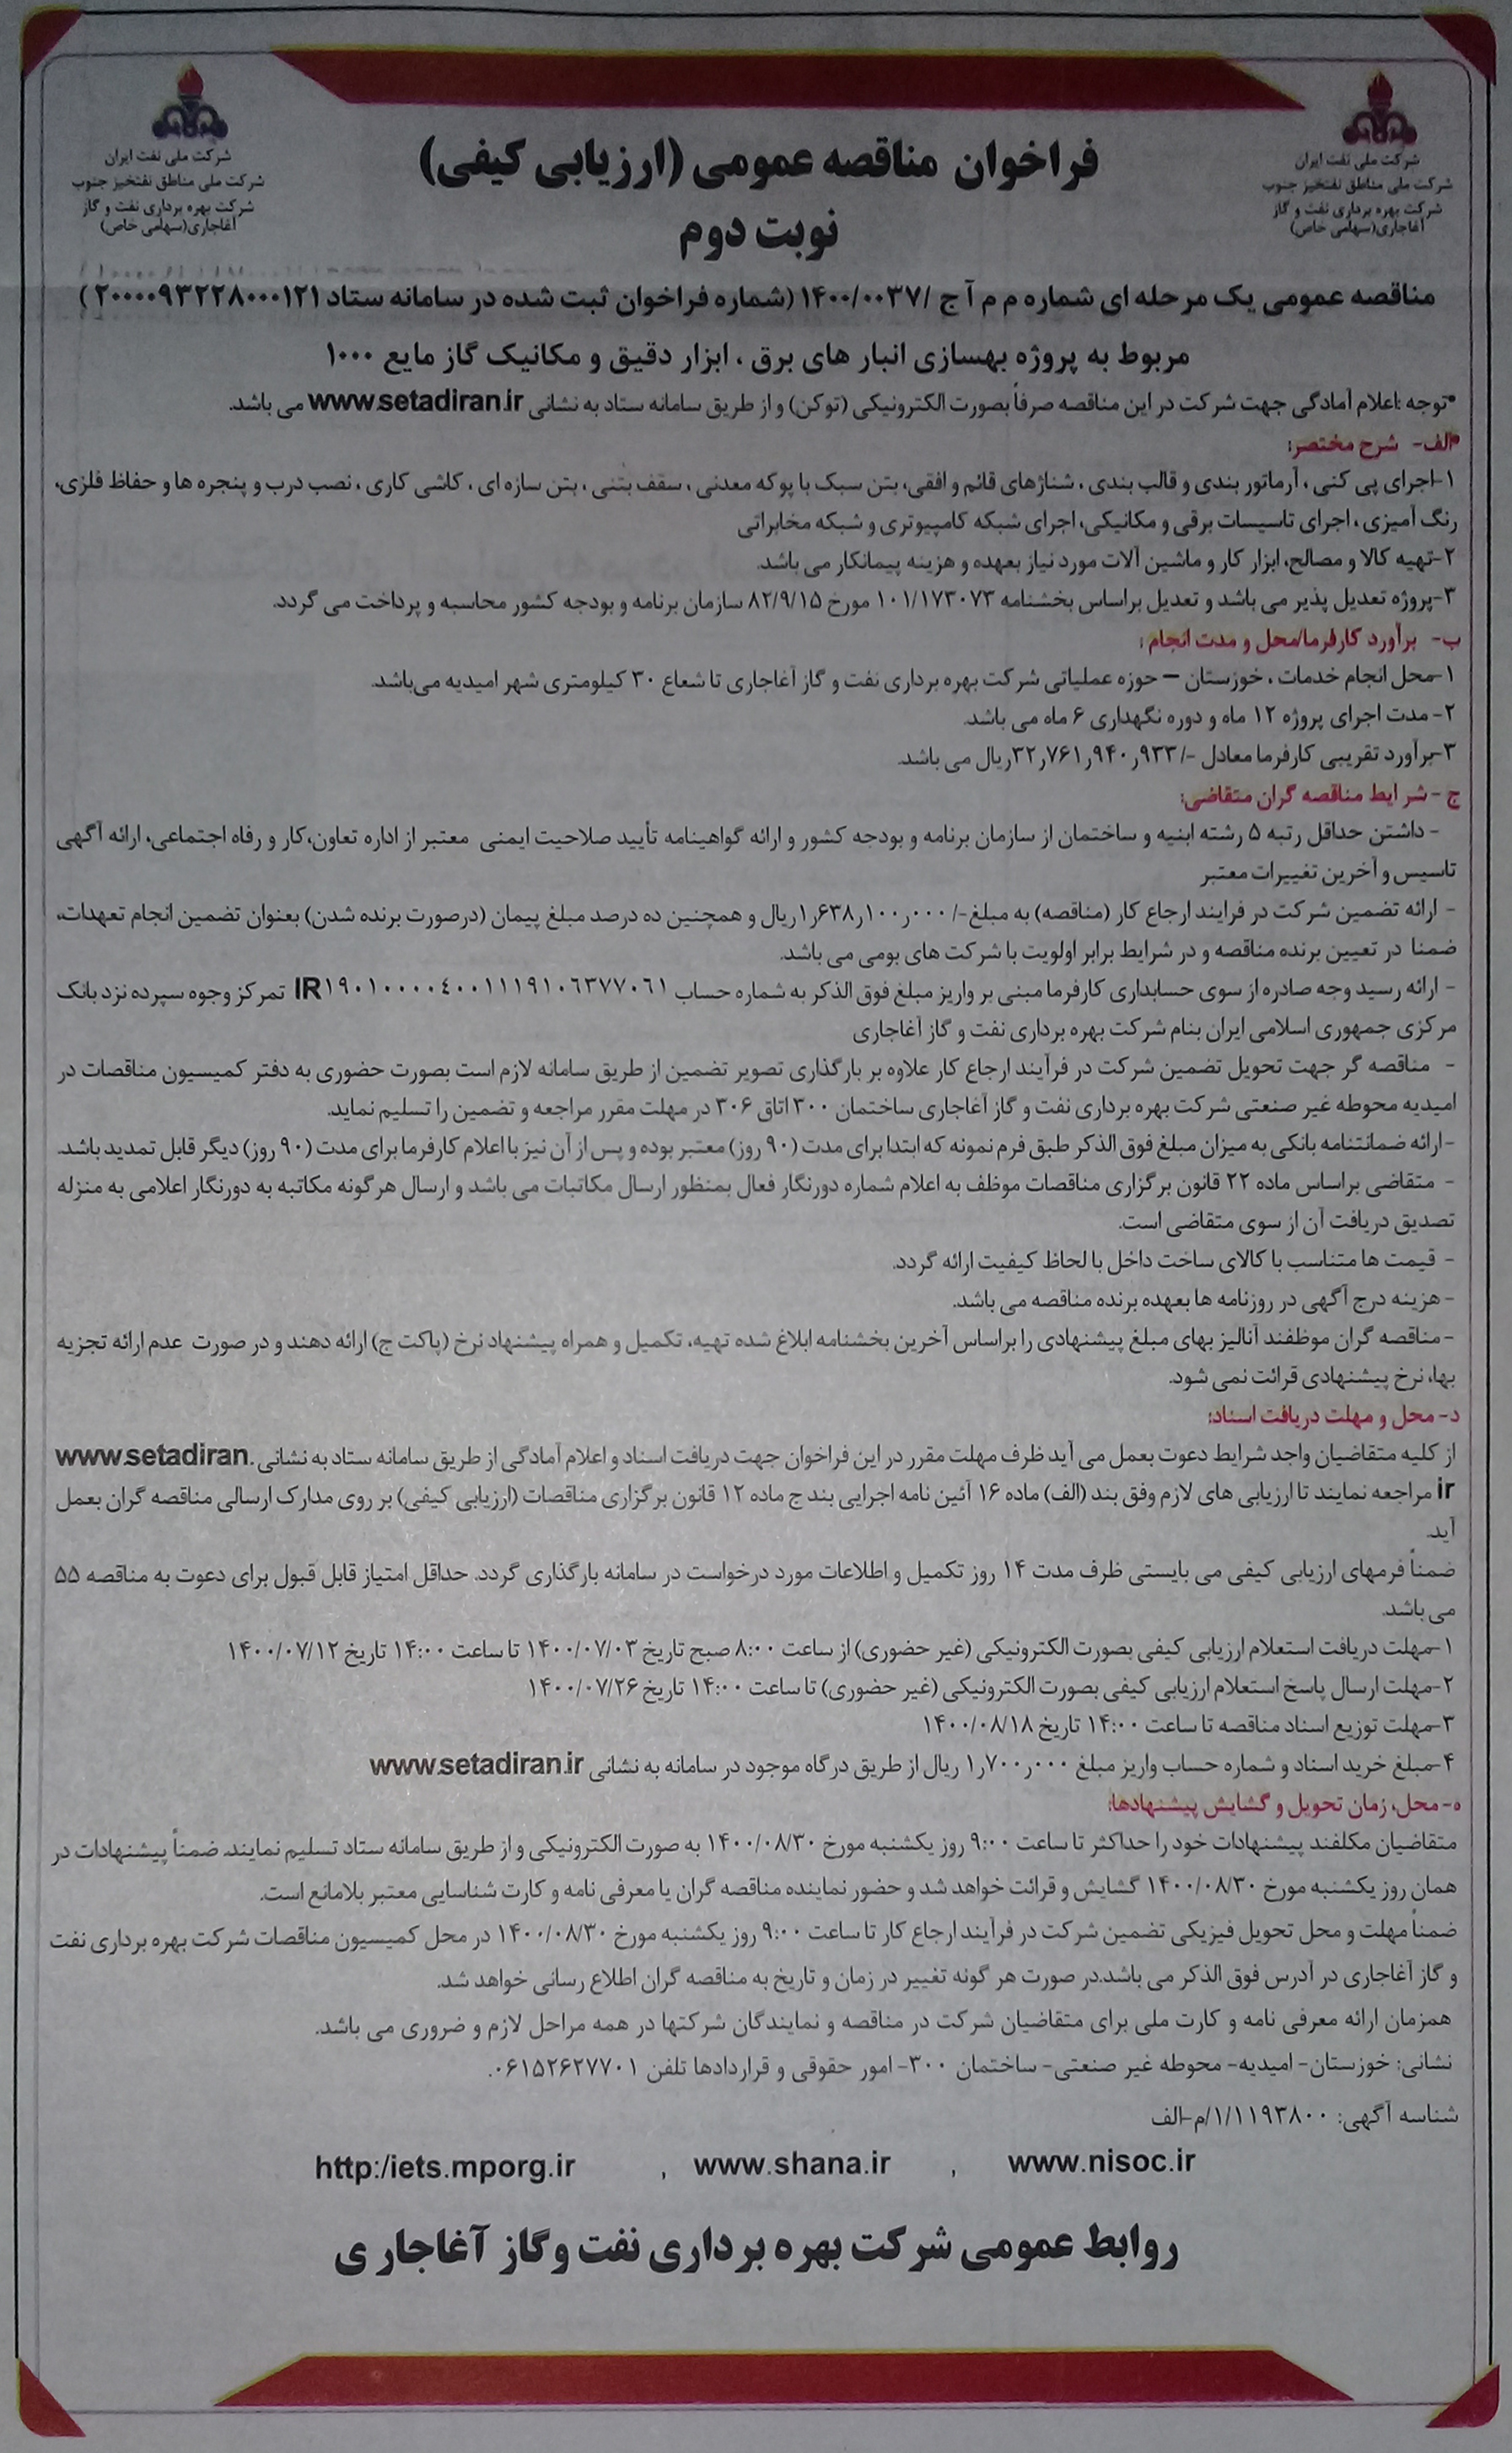 شرکت ملی نفت ایران
شرکت ملی مناطق نفتخیز جنوب
شرکت بهره برداری نفت و گاز
آغاجاری(سهامی خاص)
شرکت ملی نفت ایران
شرکت ملی مناطق نفتخیز جنوب
شرکت بهره برداری نفت و گاز
آغاجاری(سهامی خاص)
فراخوان مناقصه عمومی (ارزیابی کیفی)
نوبت دوم
مناقصه عمومی یک مرحله ای شماره م م آ ج /۱۴۰۰/۰۰۳۷ (شماره فراخوان ثبت شده در سامانه ستاد ۲۰۰۰۰۹۳۲۲۸۰۰۰۱۲۱ )
مربوط به پروژه بهسازی انبار های برق ، ابزار دقیق و مکانیک گاز مایع ۱۰۰۰
*توجه :اعلام آمادگی جهت شرکت در این مناقصه صرفاً بصورت الکترونیکی (توکن) و از طریق سامانه ستاد به نشانی www.setadiran.ir می باشد.
*الف- شرح مختصر:
۱-اجرای پی کنی ، آرماتور بندی و قالب بندی ، شناژهای قائم و افقی، بتن سبک با پوکه معدنی ، سقف بتنی ، بتن سازه ای ، کاشی کاری ، نصب درب و پنجره ها و حفاظ فلزی،
رنگ آمیزی ، اجرای تاسیسات برقی و مکانیکی، اجرای شبکه کامپیوتری و شبکه مخابراتی
۲-تهیه کالا و مصالح، ابزار کار و ماشین آلات مورد نیاز بعهده و هزینه پیمانکار می باشد.
۳-پروژه تعدیل پذیر می باشد و تعدیل براساس بخشنامه ۱۰۱/۱۷۳۰۷۳ مورخ ۸۲/۹/۱۵ سازمان برنامه و بودجه کشور محاسبه و پرداخت می گردد.
ب- برآورد کارفرما/محل و مدت انجام :
۱-محل انجام خدمات ، خوزستان – حوزه عملیاتی شرکت بهره برداری نفت و گاز آغاجاری تا شعاع ۳۰ کیلومتری شهر امیدیه می‌باشد.
۲- مدت اجرای پروژه ۱۲ ماه و دوره نگهداری ۶ ماه می باشد.
۳-برآورد تقریبی کارفرما معادل -/۳۲٫۷۶۱٫۹۴۰٫۹۳۳ریال می باشد.
ج - شرایط مناقصه گران متقاضی:
- داشتن حداقل رتبه ۵ رشته ابنیه و ساختمان از سازمان برنامه و بودجه کشور و ارائه گواهینامه تأیید صلاحیت ایمنی معتبر از اداره تعاون،کار و رفاه اجتماعی، ارائه آگهی
تاسیس و آخرین تغییرات معتبر
- ارائه تضمین شرکت در فرایند ارجاع کار (مناقصه) به مبلغ-/۱٫۶۳۸٫۱۰۰٫۰۰۰ریال و همچنین ده درصد مبلغ پیمان (درصورت برنده شدن) بعنوان تضمین انجام تعهدات،
ضمنا در تعیین برنده مناقصه و در شرایط برابر اولویت با شرکت های بومی می باشد.
- ارائه رسید وجه صادره از سوی حسابداری کارفرما مبنی بر واریز مبلغ فوق الذکر به شماره حساب IR۱۹۰۱۰۰۰۰٤۰۰۱۱۱۹۱۰٦۳۷۷۰٦۱ تمرکز وجوه سپرده نزد بانک
مرکزی جمهوری اسلامی ایران بنام شرکت بهره برداری نفت و گاز آغاجاری
- مناقصه گر جهت تحویل تضمین شرکت در فرآیند ارجاع کار علاوه بر بارگذاری تصویر تضمین از طریق سامانه لازم است بصورت حضوری به دفتر کمیسیون مناقصات در
امیدیه محوطه غیر صنعتی شرکت بهره برداری نفت و گاز آغاجاری ساختمان ۳۰۰ اتاق ۳۰۶ در مهلت مقرر مراجعه و تضمین را تسلیم نماید.
-ارائه ضمانتنامه بانکی به میزان مبلغ فوق الذکر طبق فرم نمونه که ابتدا برای مدت (۹۰ روز) معتبر بوده و پس از آن نیز با اعلام کارفرما برای مدت (۹۰ روز) دیگر قابل تمدید باشد.
- متقاضی براساس ماده ۲۲ قانون برگزاری مناقصات موظف به اعلام شماره دورنگار فعال بمنظور ارسال مکاتبات می باشد و ارسال هرگونه مکاتبه به دورنگار اعلامی به منزله
تصدیق دریافت آن از سوی متقاضی است.
- قیمت ها متناسب با کالای ساخت داخل با لحاظ کیفیت ارائه گردد.
- هزینه درج آگهی در روزنامه ها بعهده برنده مناقصه می باشد.
- مناقصه گران موظفند آنالیز بهای مبلغ پیشنهادی را براساس آخرین بخشنامه ابلاغ شده تهیه، تکمیل و همراه پیشنهاد نرخ (پاکت ج) ارائه دهند و در صورت عدم ارائه تجزیه
بها، نرخ پیشنهادی قرائت نمی شود.
د- محل و مهلت دریافت اسناد:
از کلیه متقاضیان واجد شرایط دعوت بعمل می آید ظرف مهلت مقرر در این فراخوان جهت دریافت اسناد و اعلام آمادگی از طریق سامانه ستاد به نشانی www.setadiran.
ir مراجعه نمایند تا ارزیابی های لازم وفق بند (الف) ماده ۱۶ آئین نامه اجرایی بند ج ماده ۱۲ قانون برگزاری مناقصات (ارزیابی کیفی) بر روی مدارک ارسالی مناقصه گران بعمل
آید.
ضمناً فرمهای ارزیابی کیفی می بایستی ظرف مدت ۱۴ روز تکمیل و اطلاعات مورد درخواست در سامانه بارگذاری گردد. حداقل امتیاز قابل قبول برای دعوت به مناقصه ۵۵
می باشد.
۱-مهلت دریافت استعلام ارزیابی کیفی بصورت الکترونیکی (غیر حضوری) از ساعت ۸:۰۰ صبح تاریخ ۱۴۰۰/۰۷/۰۳ تا ساعت ۱۴:۰۰ تاریخ ۱۴۰۰/۰۷/۱۲
۲-مهلت ارسال پاسخ استعلام ارزیابی کیفی بصورت الکترونیکی (غیر حضوری) تا ساعت ۱۴:۰۰ تاریخ ۱۴۰۰/۰۷/۲۶
۳-مهلت توزیع اسناد مناقصه تا ساعت ۱۴:۰۰ تاریخ ۱۴۰۰/۰۸/۱۸
۴-مبلغ خرید اسناد و شماره حساب واریز مبلغ ۱٫۷۰۰٫۰۰۰ ریال از طریق درگاه موجود در سامانه به نشانی www.setadiran.ir
ه- محل، زمان تحویل و گشایش پیشنهادها:
متقاضیان مکلفند پیشنهادات خود را حداکثر تا ساعت ۹:۰۰ روز یکشنبه مورخ ۱۴۰۰/۰۸/۳۰ به صورت الکترونیکی و از طریق سامانه ستاد تسلیم نمایند. ضمناً پیشنهادات در
همان روز یکشنبه مورخ ۱۴۰۰/۰۸/۳۰ گشایش و قرائت خواهد شد و حضور نماینده مناقصه گران یا معرفی نامه و کارت شناسایی معتبر بلامانع است.
ضمناً مهلت و محل تحویل فیزیکی تضمین شرکت در فرآیند ارجاع کار تا ساعت ۹:۰۰ روز یکشنبه مورخ ۱۴۰۰/۰۸/۳۰ در محل کمیسیون مناقصات شرکت بهره برداری نفت
و گاز آغاجاری در آدرس فوق الذکر می باشد.در صورت هر گونه تغییر در زمان و تاریخ به مناقصه گران اطلاع رسانی خواهد شد.
همزمان ارائه معرفی نامه و کارت ملی برای متقاضیان شرکت در مناقصه و نمایندگان شرکتها در همه مراحل لازم و ضروری می باشد.
نشانی: خوزستان- امیدیه- محوطه غیر صنعتی- ساختمان ۳۰۰- امور حقوقی و قراردادها تلفن ۰۶۱۵۲۶۲۷۷۰۱.
شناسه آگهی: ۱/۱۱۹۳۸۰۰/م-الف
www.nisoc.ir , www.shana.ir , http:/iets.mporg.ir
روابط عمومی شرکت بهره برداری نفت و گاز آغاجاری